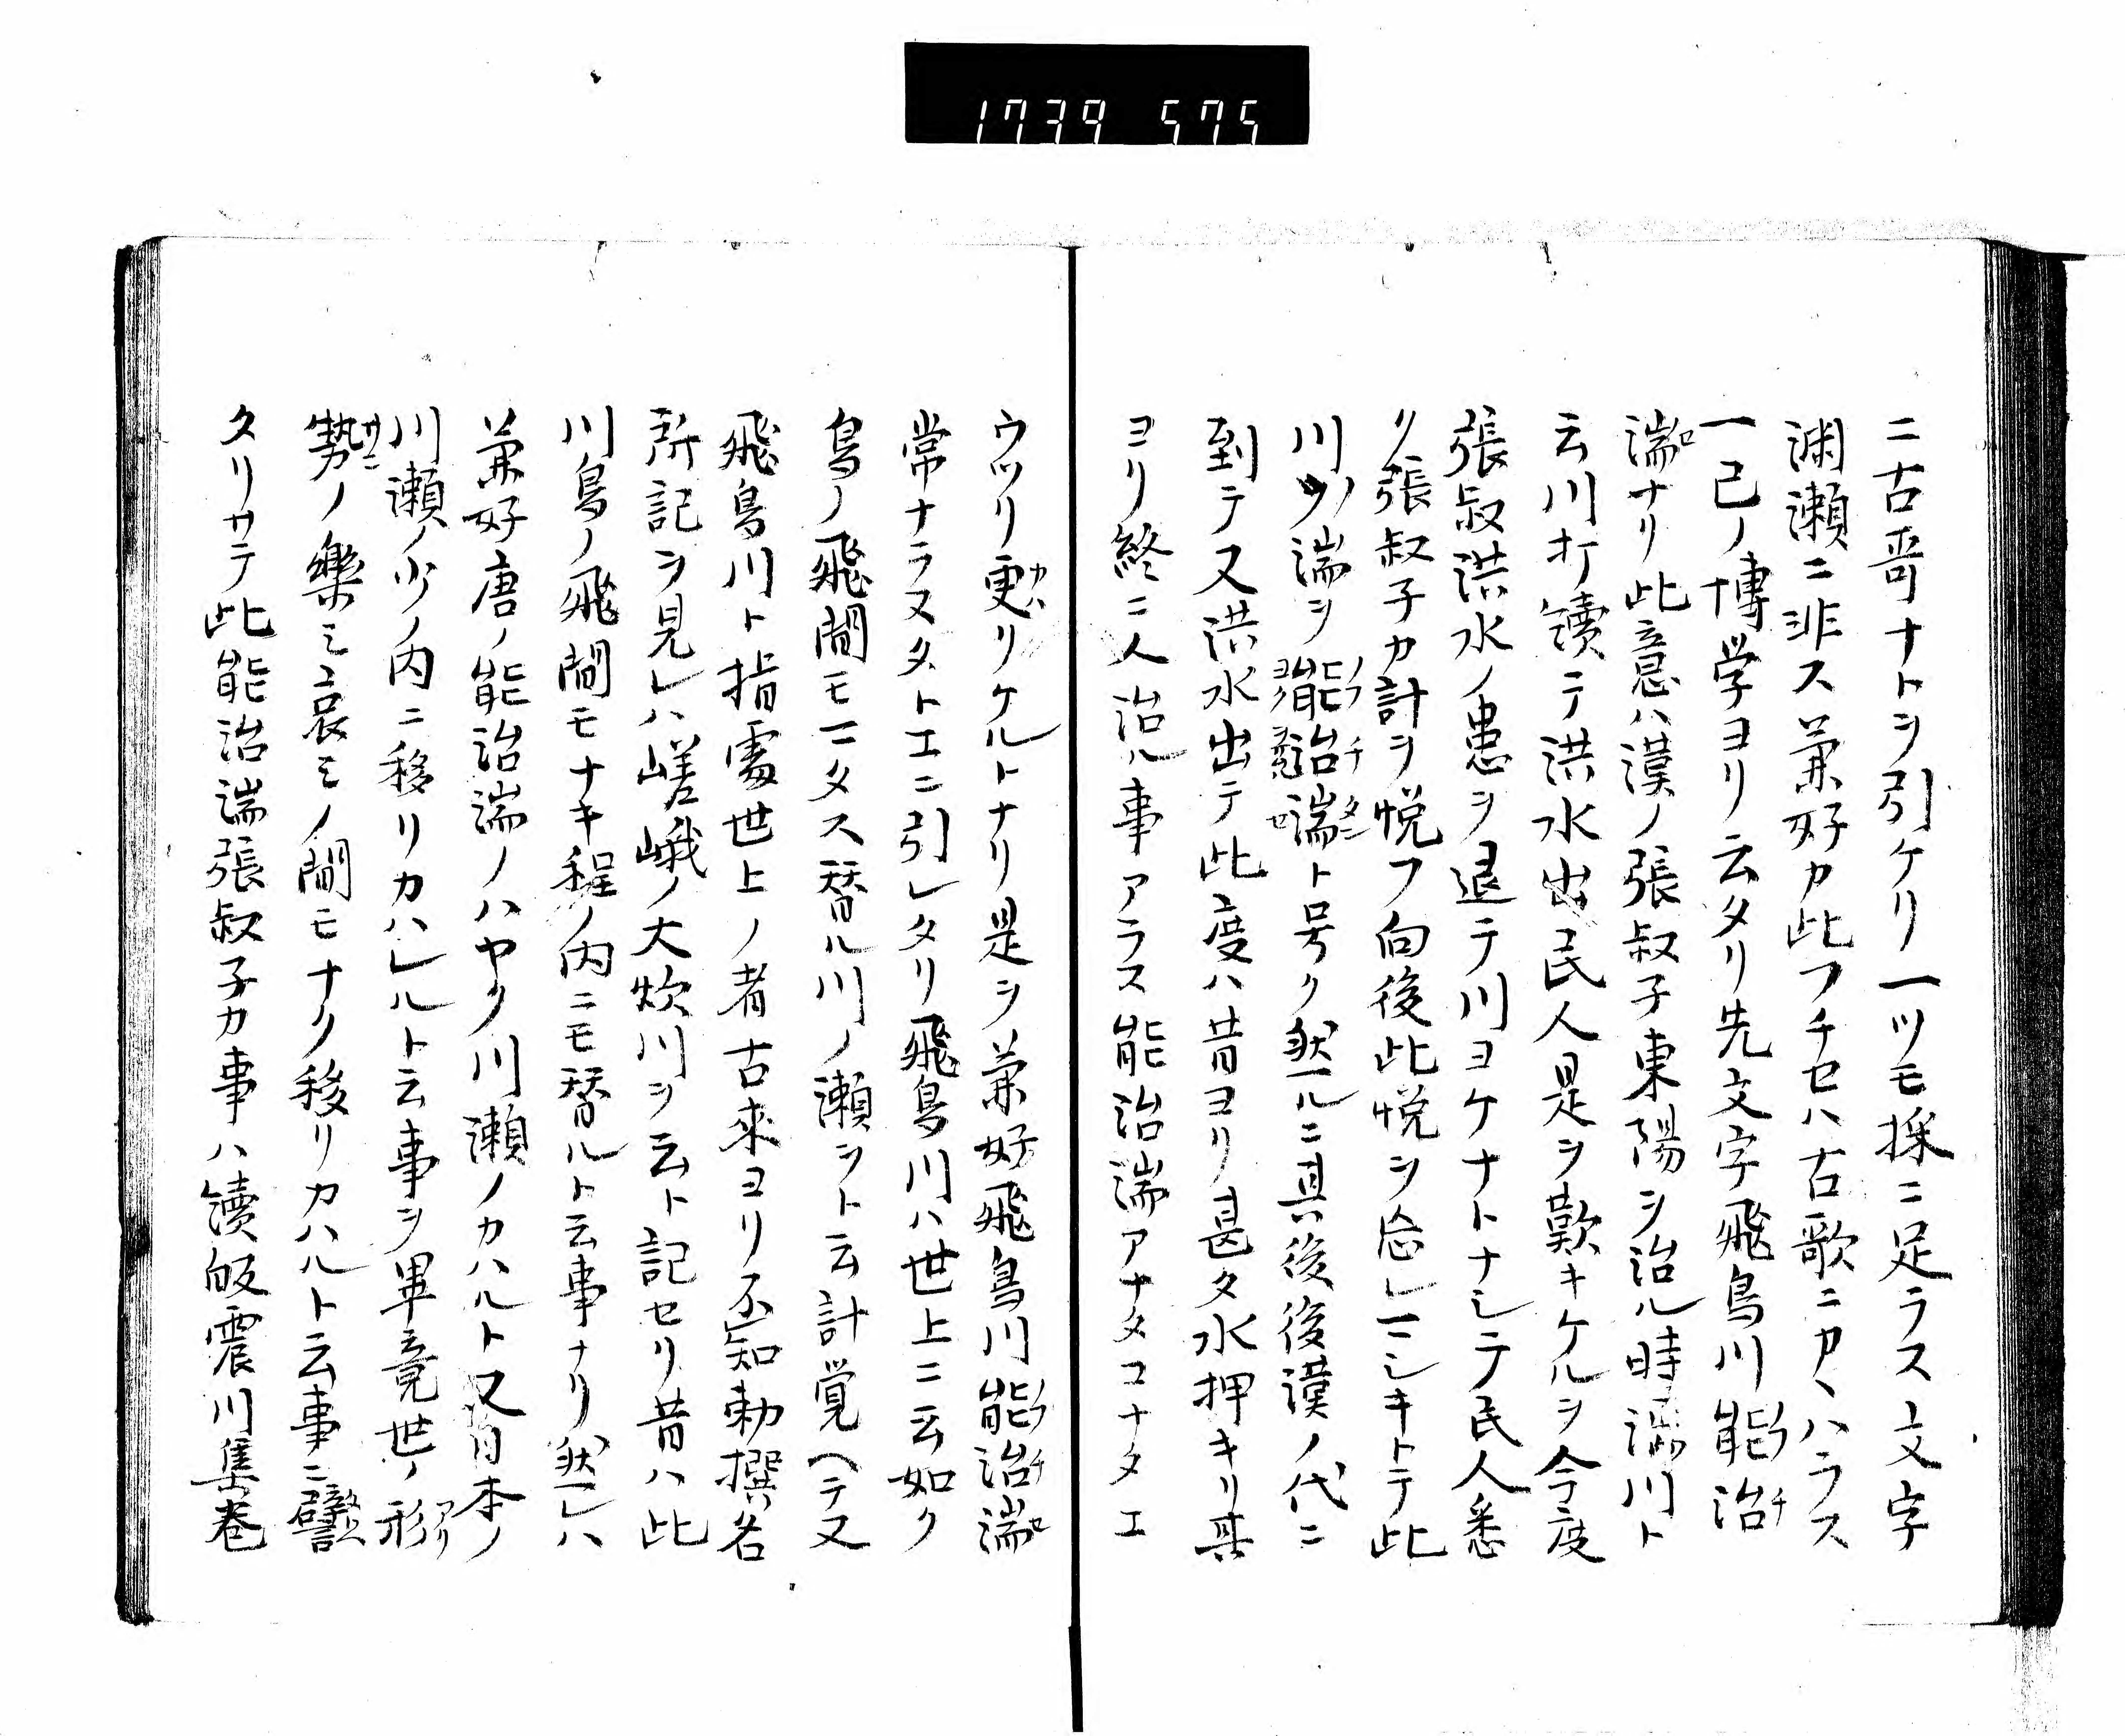 1739 575
ニ古哥ナトヲ引ケリ一ツモ採ニ足ラス文字
渕瀬ニ非ス兼好カ此フチセハ古歌ニアハラス
一己ノ博学ヨリ云タリ先文字飛鳥川能治
湍ナリ此意ハ漢ノ張叔子東陽ヲ治ル時湍川ト
云川打續テ洪水出民人是ヲ歎キケルヲ今度
張叔洪水ノ患ヲ退テ川ヨケナトナシテ民人悉
ク張叔子カ計ヲ悦フ向後此悦ヲ忘レマシキトテ此
川ノ湍ヲ能治湍ト号ク然ルニ其後後漢ノ代ニ
到テ又洪水出テ此度ハ昔ヨリ甚タ水押キリ其
ヨリ終ニ人治ル事アラス能治湍アナタコナタエ
ウツリ更リケルトナリ是ヲ兼好飛鳥川能治湍
常ナラヌタトエニ引レタリ飛鳥川ハ世上ニ云如ク
鳥ノ飛間モマタス替ル川ノ瀬ヲト云計覚ヘテ又
飛鳥川ト指處世上ノ者古来ヨリ不知勅撰名
所記ヲ見レハ嵯峨ノ大炊川ヲ云ト記セリ昔ハ此
川鳥ノ飛間モナキ程ノ内ニモ替ルト云事ナリ然レハ
兼好唐ノ能治湍ノハヤク川瀬ノカハルト又日本ノ
川瀬ノ少ノ内ニ移リカハレルト云事ヲ畢竟世ノ形
勢ノ樂ミ哀ミノ間モナク移リカハルト云事ニ譬
タリサテ此能治湍張叔子カ事ハ續皈震川集巻